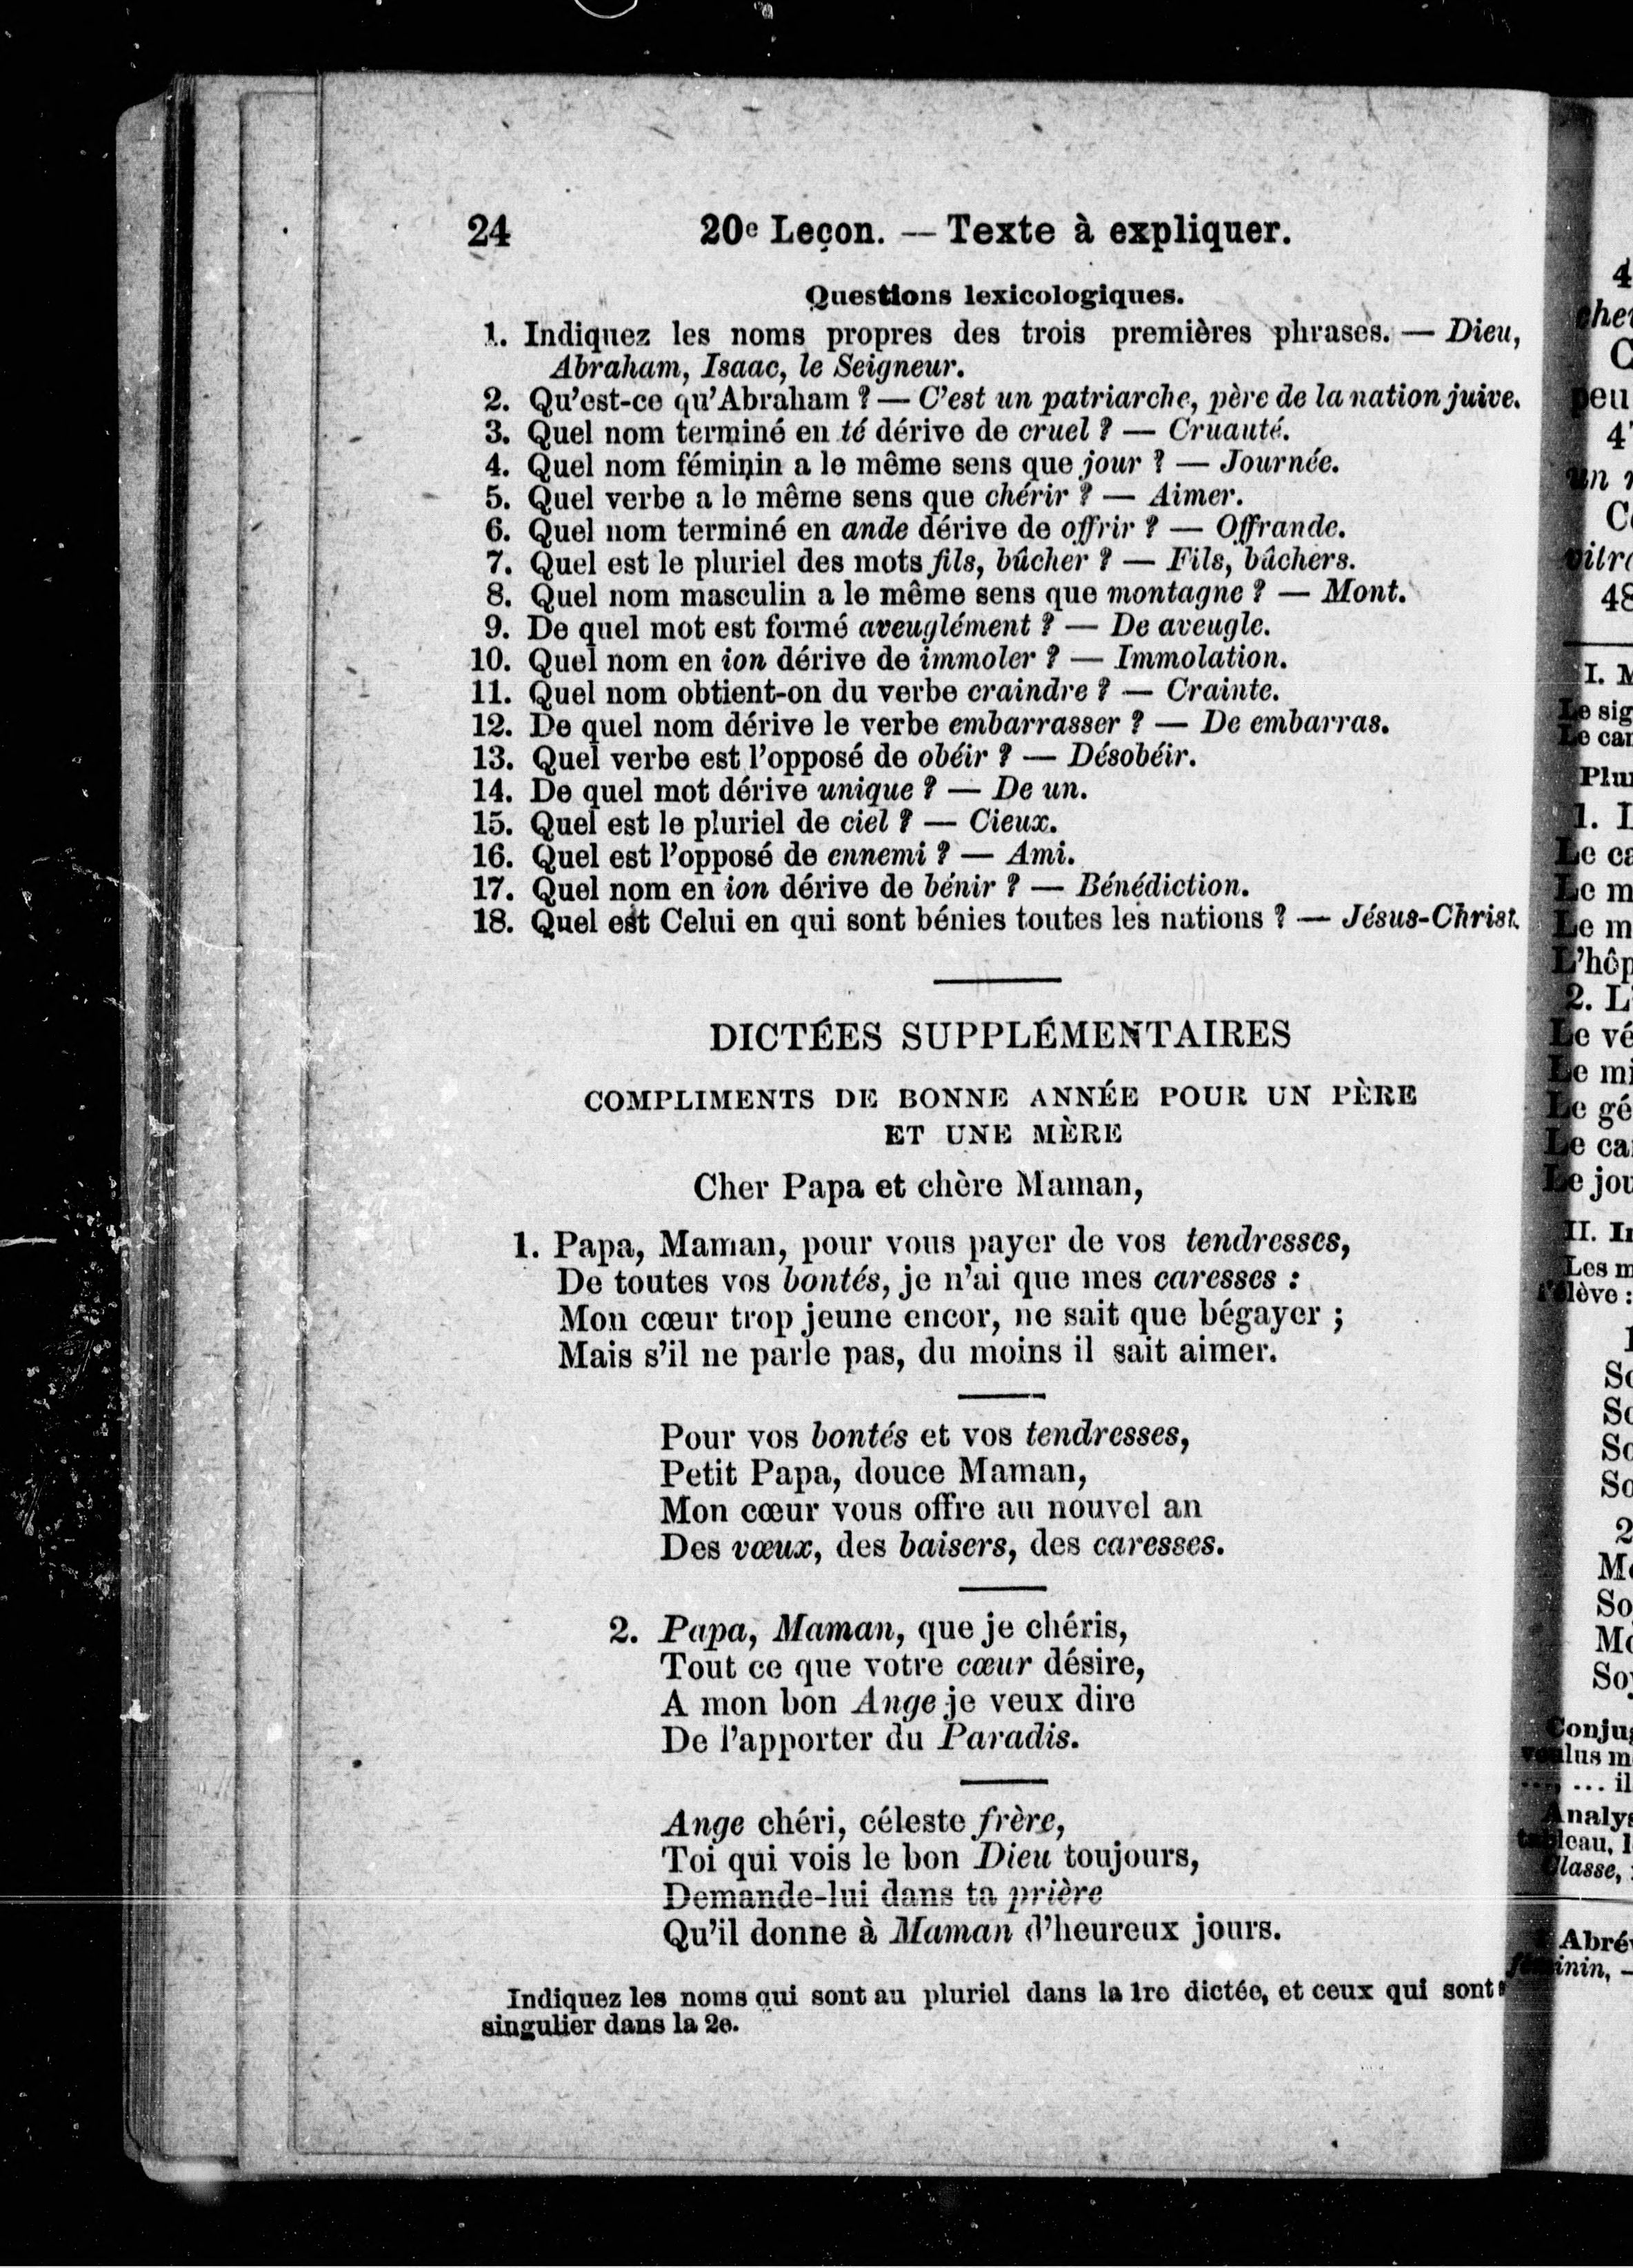 24 20e Leçon. — Texte à expliquer.
Questions lexicologiques.
1. Indiquez les noms propres des trois premières phrases. — Dieu,
Abraham, Isaac, le Seigneur.
2. Qu'est-ce qu'Abraham ? — C'est un patriarche, père de la nation juive.
3. Quel nom terminé en té dérive de cruel ? — Cruauté.
4. Quel nom féminin a le même sens que jour ? — Journée.
5. Quel verbe a le même sens que chérir ? — Aimer.
6. Quel nom terminé en ande dérive de offrir ? — Offrande.
7. Quel est le pluriel des mots fils, bûcher ? — Fils, bûchers.
8. Quel nom masculin a le même sens que montagne ? — Mont.
9. De quel mot est formé aveuglément ? — De aveugle.
10. Quel nom en ion dérive de immoler ? — Immolation.
11. Quel nom obtient-on du verbe craindre ? — Crainte.
12. De quel nom dérive le verbe embarrasser ? — De embarras.
13. Quel verbe est l'opposé de obéir ? — Désobéir.
14. De quel mot dérive unique ? — De un.
15. Quel est le pluriel de ciel ? — Cieux.
16. Quel est l'opposé de ennemi ? — Ami.
17. Quel nom en ion dérive de bénir ? — Bénédiction.
18. Quel est Celui en qui sont bénies toutes les nations ? — Jésus-Christ.
DICTÉES SUPPLÉMENTAIRES
COMPLIMENTS DE BONNE ANNÉE POUR UN PÈRE
ET UNE MÈRE
Cher Papa et chère Maman,
1. Papa, Maman, pour vous payer de vos tendresses,
De toutes vos bontés, je n'ai que mes caresses :
Mon cœur trop jeune encor, ne sait que bégayer ;
Mais s'il ne parle pas, du moins il sait aimer.
Pour vos bontés et vos tendresses,
Petit Papa, douce Maman,
Mon cœur vous offre au nouvel an
Des vœux, des baisers, des caresses.
2. Papa, Maman, que je chéris,
Tout ce que votre cœur désire,
A mon bon Ange je veux dire
De l'apporter du Paradis.
Ange chéri, céleste frère,
Toi qui vois le bon Dieu toujours,
Demande-lui dans ta prière
Qu'il donne à Maman d'heureux jours.
Indiquez les noms qui sont au pluriel dans la 1re dictée, et ceux qui sont
singulier dans la 2e.